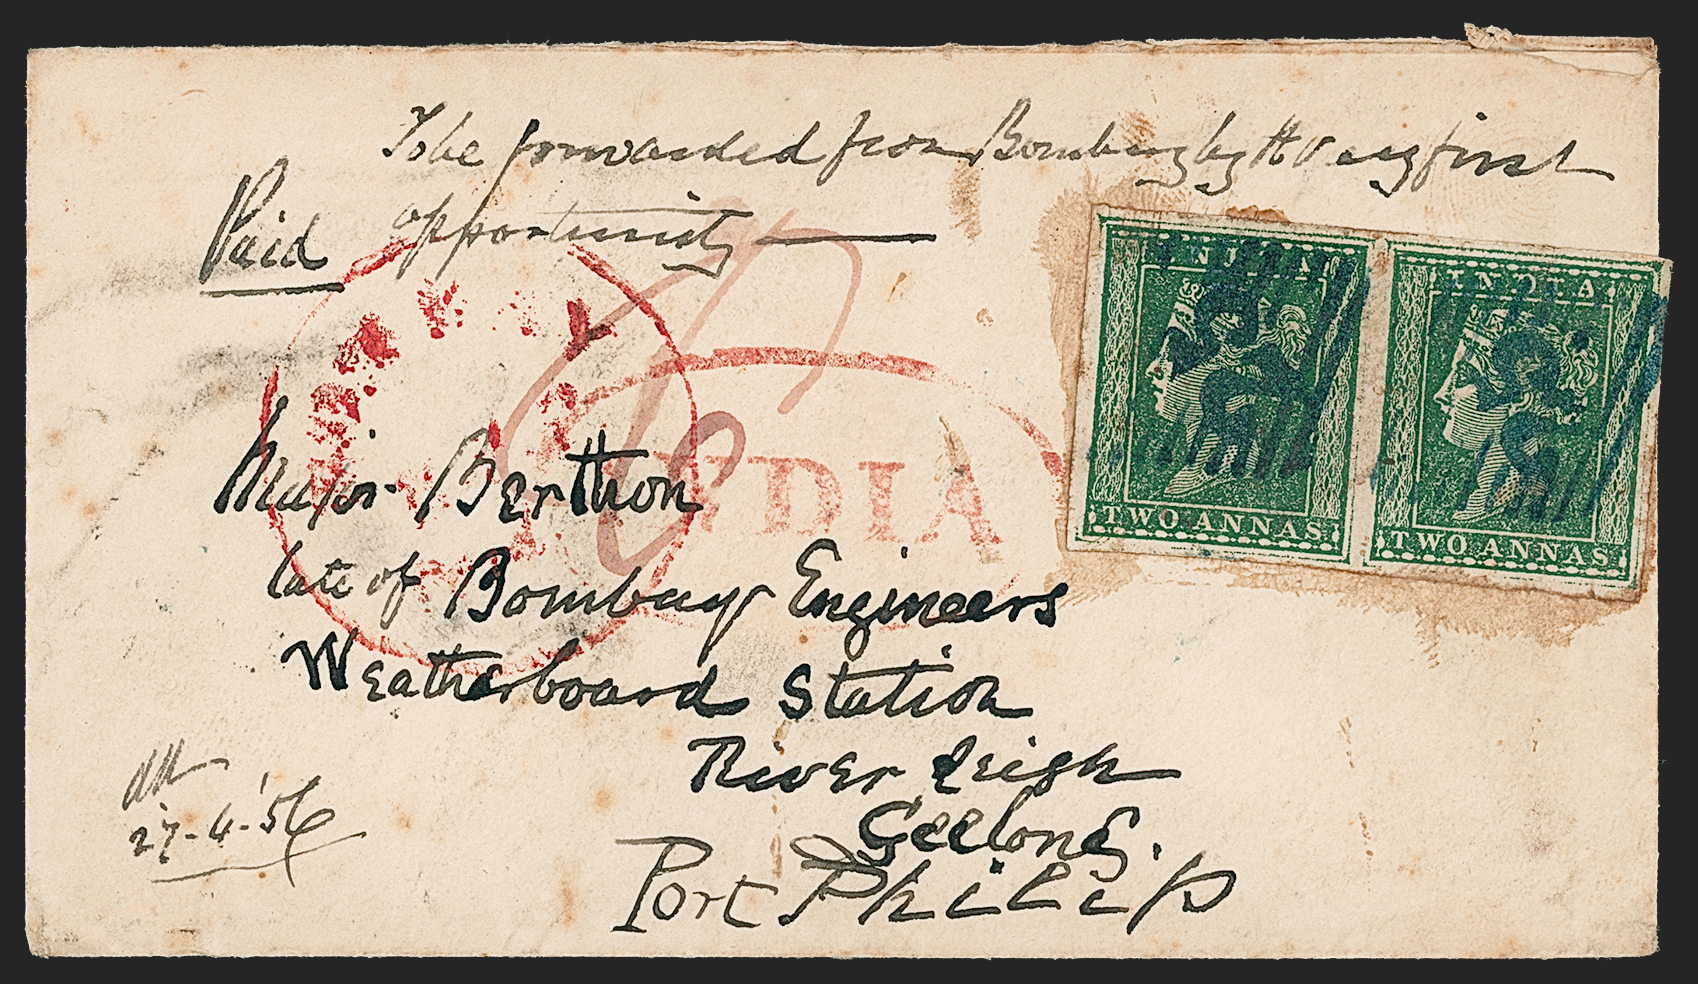 To be forwarded from Bombay by H V any first
opportunity
Paid
INDIA
TWO ANNAS
INDIA
TWO ANNAS
INDIA
Major Berthon
late of Bombay Engineers
Weatherboard Station
River Leigh
Geelong.
Port Philip
27-4-'56